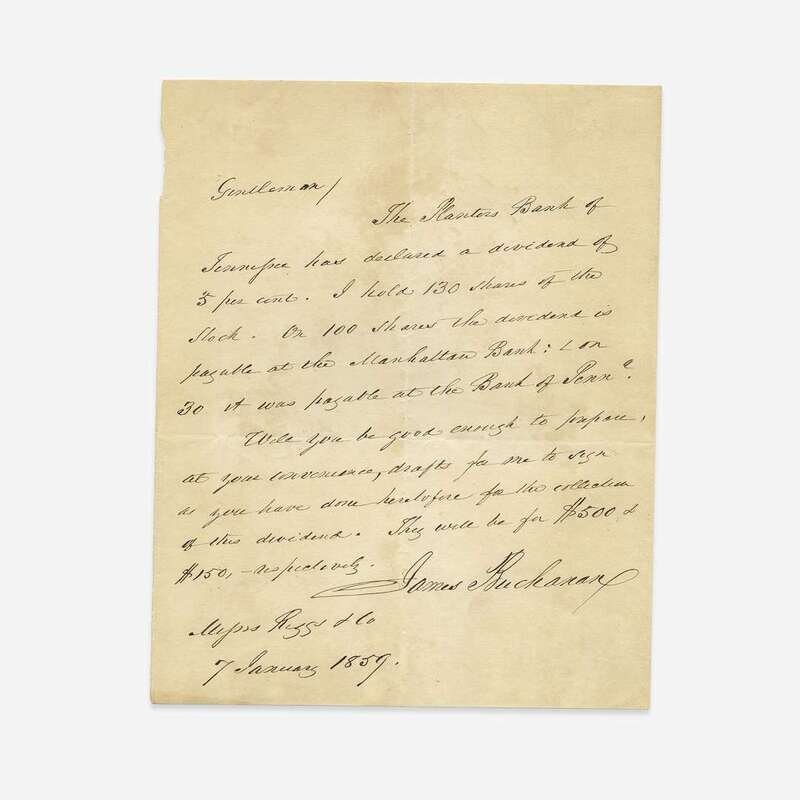 Gentlemen/
The Planters Bank of
Tennessee has declared a dividend of
5 per cent. I hold 130 shares of the
Stock. On 100 shares the dividend is
payable at the Manhattan Bank: & on
30 it was payable at the Bank of Tennᵉ.
Will you be good enough to prepare,
at your convenience, drafts for me to sign
as you have done heretofore for the collection
of this dividend. They will be for $500 &
$150,- respectively.
James Buchanan
Messrs Riggs & Co
7 January 1859.